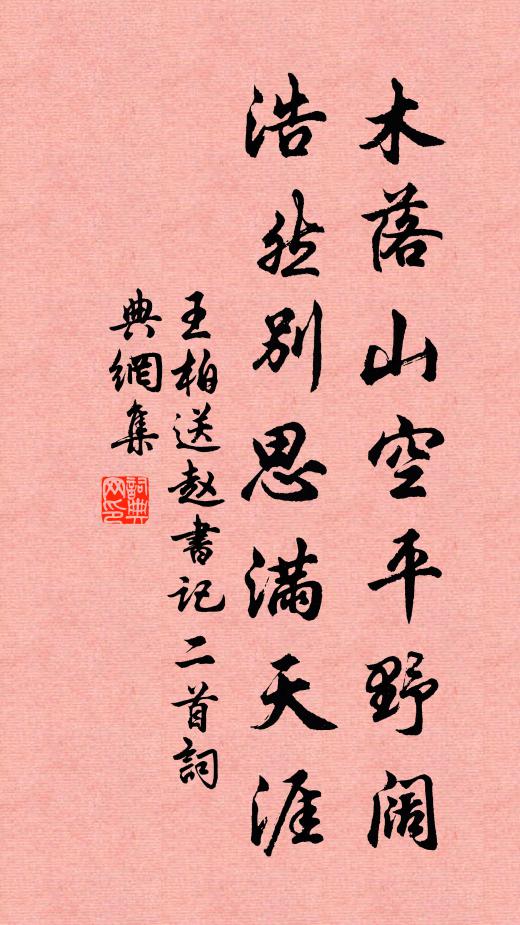 木落山空平野阔
浩然别思满天涯
王柏送赵書记二首詞
典網集
詞典网印